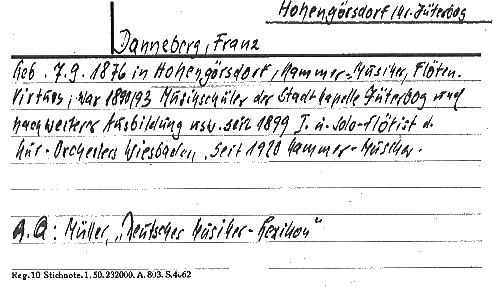 Hohengörsdorf Kr. Jüterbog
Danneberg, Franz
Geb. 7.9.1876 in Hohengörsdorf, Kammer-Musiker, Flöten-
virtuos; war 1890/93 Musikschüler der Stadtkapelle Jüterbog und
nach weiterer Ausbildung usw. seit 1899 I. u. Solo-Flötist d.
Kur-Orchesters Wiesbaden, seit 1920 Kammer-Musiker.
A.Q: Müller, "Deutsches Musiker-Lexikon"
Reg. 10 Stichnote. 1, 50. 232000. A. 803. S. 4.62